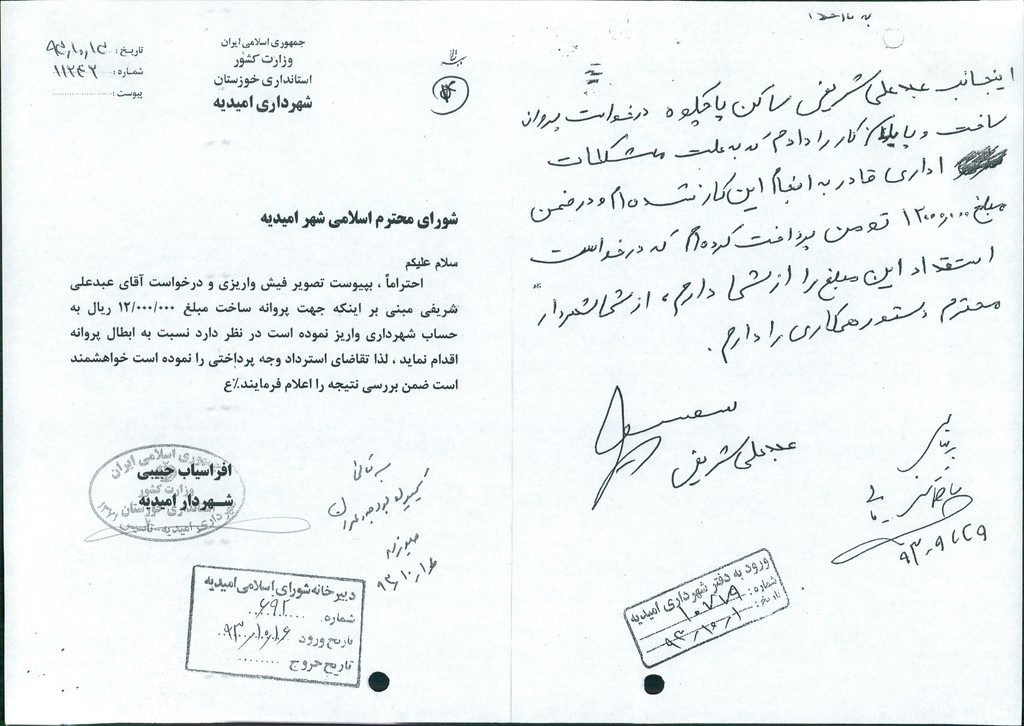 به نام خدا
اینجانب عبدعلی شریفی ساکن پاچکوه درخواست پروانه
ساخت و پایان کار را دادم که به علت مشکلات
اداری قادر به انجام این کار نشده ام و در ضمن
مبلغ ۱۲۰۰۰۰۰ تومن پرداخت کرده ام که درخواست
استقداد این مبلغ را از شما دارم، از شما شهردار
محترم دستور همکاری را دارم.
عبدعلی شریفی
۹۳٫۹٫۲۹
ورود به دفتر شهرداری امیدیه
شماره: ۱۰۷۷۹
تاریخ: ۹۳/۱۰/۱
جمهوری اسلامی ایران
وزارت کشور
استانداری خوزستان
شهرداری امیدیه
تاریخ: ۹۳٫۱۰٫۱۳
شماره: ۱۱۲۴۲
پیوست:
شورای محترم اسلامی شهر امیدیه
سلام علیکم
احتراماً ، بپیوست تصویر فیش واریزی و درخواست آقای عبدعلی
شریفی مبنی بر اینکه جهت پروانه ساخت مبلغ ۱۲/۰۰۰/۰۰۰ ریال به
حساب شهرداری واریز نموده است در نظر دارد نسبت به ابطال پروانه
اقدام نماید ، لذا تقاضای استرداد وجه پرداختی را نموده است خواهشمند
است ضمن بررسی نتیجه را اعلام فرمایند٪ع
افراسیاب حبیبی
شهردار امیدیه
جمهوری اسلامی ایران
وزارت کشور
استانداری خوزستان
شهرداری امیدیه - تاسیس
دبیرخانه شورای اسلامی امیدیه
شماره ۶۹۲
تاریخ ورود ۹۳/۱۰/۱۶
تاریخ خروج